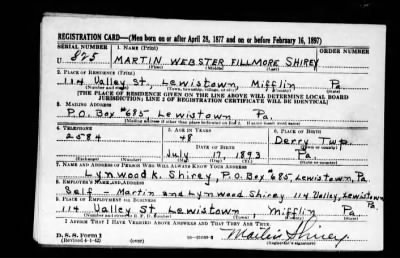 REGISTRATION CARD—(Men born on or after April 28, 1877 and on or before February 16, 1897)
SERIAL NUMBER 1. NAME (Print) ORDER NUMBER
U 825 MARTIN WEBSTER FILLMORE SHIREY
(First) (Middle) (Last)
2. PLACE OF RESIDENCE (Print)
114 Valley St., Lewistown, Mifflin Pa.
(Number and street) (Town, township, village, or city) (County) (State)
[THE PLACE OF RESIDENCE GIVEN ON THE LINE ABOVE WILL DETERMINE LOCAL BOARD
JURISDICTION; LINE 2 OF REGISTRATION CERTIFICATE WILL BE IDENTICAL]
3. MAILING ADDRESS
P.O. Box #685 Lewistown Pa.
[Mailing address if other than place indicated on line 2. If same insert word same]
4. TELEPHONE 5. AGE IN YEARS 6. PLACE OF BIRTH
2584 48 Derry Twp.
DATE OF BIRTH (Town or county)
July 17, 1893 Pa.
(Exchange) (Number) (Mo.) (Day) (Yr.) (State or country)
7. NAME AND ADDRESS OF PERSON WHO WILL ALWAYS KNOW YOUR ADDRESS
Lynwood K. Shirey, P.O. Box #685, Lewistown, Pa.
8. EMPLOYER'S NAME AND ADDRESS
Self - Martin and Lynwood Shirey 114 Valley, Lewistown, Pa.
9. PLACE OF EMPLOYMENT OR BUSINESS
114 Valley St. Lewistown, Mifflin Pa.
(Number and street or R. F. D. number) (Town) (County) (State)
I AFFIRM THAT I HAVE VERIFIED ABOVE ANSWERS AND THAT THEY ARE TRUE.
D. S. S. Form 1
(Revised 4-1-42) (over) Martin Shirey
(Registrant's signature)